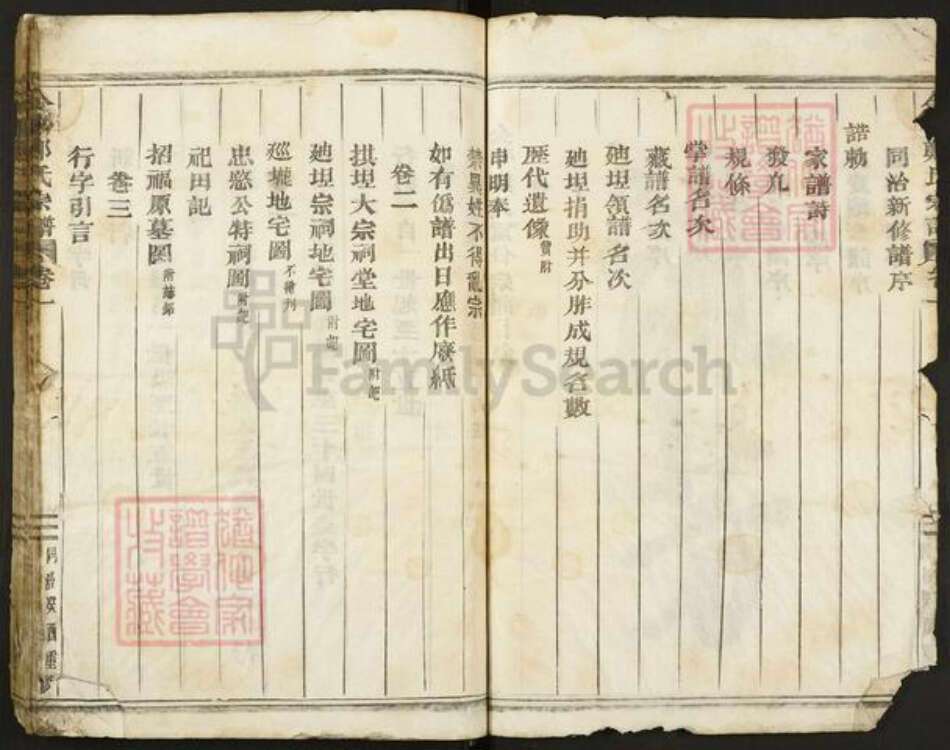 同治新修譜序
誥勅
家譜誇
發凡
規條
掌譜名次
藏譜名次
廸坦領譜名次
廸坦捐助并分胙成規名數
歷代遺像 贊附
申明奉
禁異姓不得亂宗
如有僞譜出日應作廢紙
卷二
拱坦大宗祠堂地宅圖 附記
廸坦宗祠地宅圖 附記
巡壠地宅圖 不繪刋
忠愍公特祠圖 附記
祀田記
招福原墓圖
卷三
行字引言
鄭氏宗譜 卷一
同治癸酉重修
FamilySearch